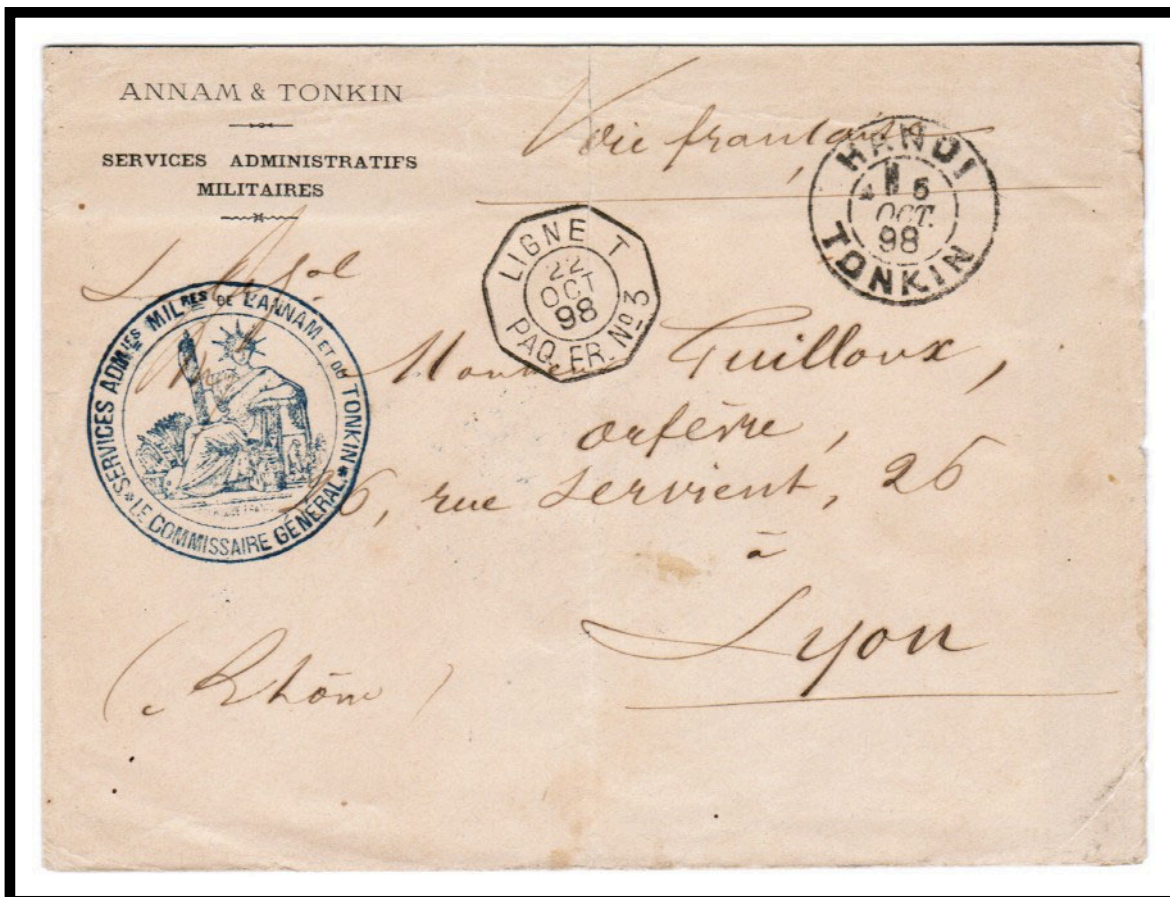 ANNAM & TONKIN
SERVICES ADMINISTRATIFS
MILITAIRES
Voie française
HANOI
5
OCT.
98
TONKIN
LIGNE T
22
OCT
98
PAQ. FR. Nº 3
* SERVICES ADMIES MILRES DE L'ANNAM ET DU TONKIN *
LE COMMISSAIRE GÉNÉRAL
Guilloux,
orfèvre,
26, rue Servient, 26
à
Lyon
(Rhône)